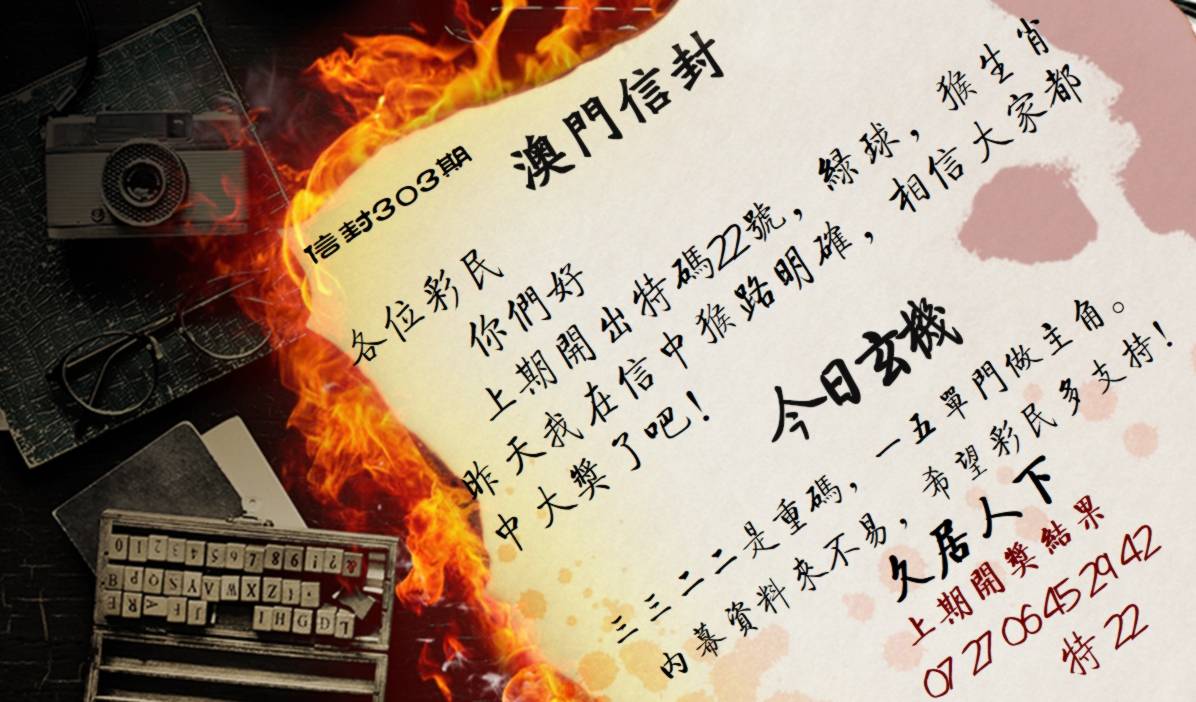 澳門信封
信封303期
各位彩民
你們好
上期開出特碼22號，綠球，猴生肖
昨天我在信中猴路明確，相信大家都
中大獎了吧！
今日玄機
三三二二是重碼，一五單門做主角。
內幕資料來不易，希望彩民多支持！
久居人下
上期開獎結果
07 27 06 45 29 42
特 22